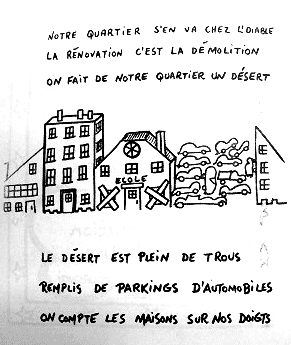 NOTRE QUARTIER S'EN VA CHEZ L'DIABLE
LA RÉNOVATION C'EST LA DÉMOLITION
ON FAIT DE NOTRE QUARTIER UN DÉSERT
ECOLE
LE DÉSERT EST PLEIN DE TROUS
REMPLIS DE PARKINGS D'AUTOMOBILES
ON COMPTE LES MAISONS SUR NOS DOIGTS